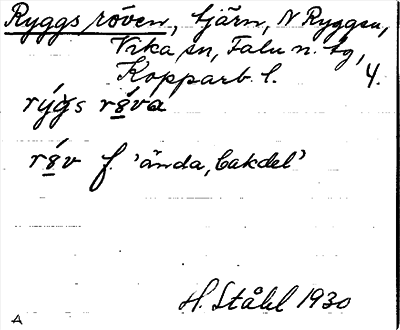 Ryggsröven, tjärn, N Ryggen,
Vika sn, Falu n. tg,
Kopparb. l. 4.
rýgs rö́va
rö́v f. 'ända, bakdel'
H. Ståhl 1930
A